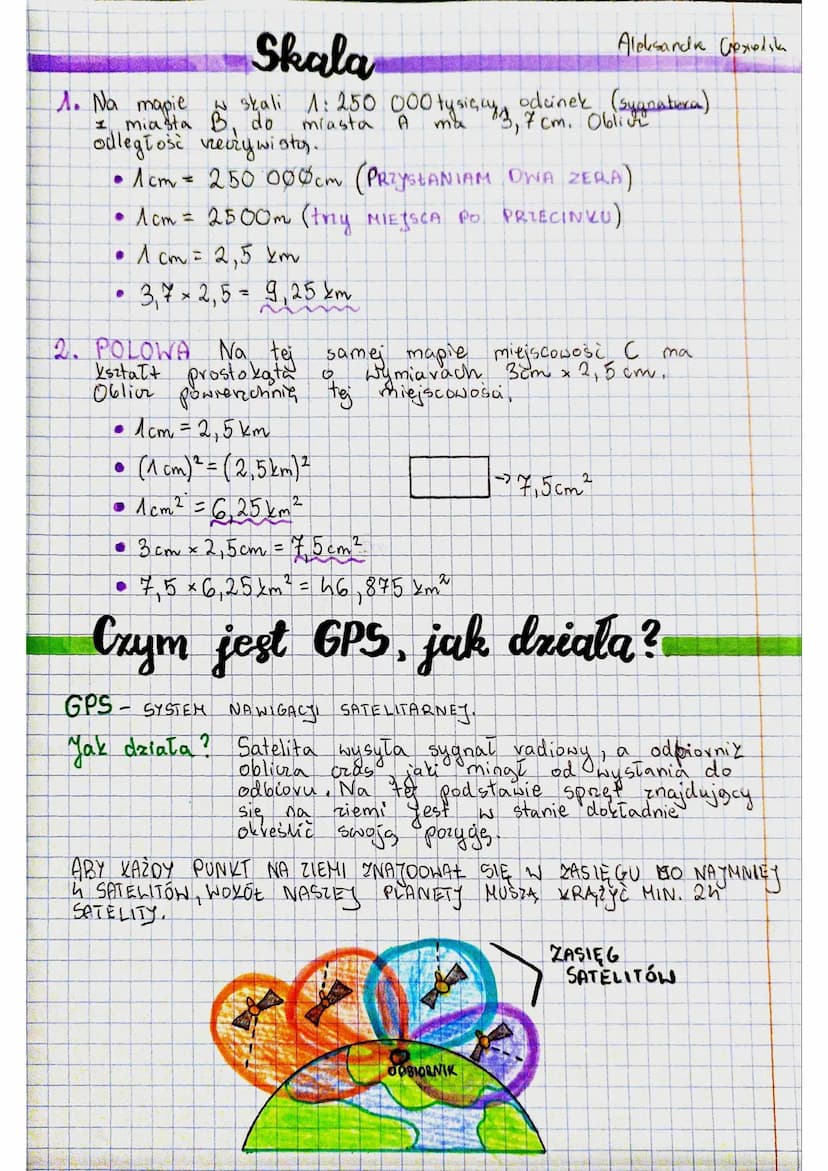 Skala
Aleksandra
1. Na mapie w skali 1:250 000 tysięcy, odcinek (sygnatura)
z miasta B, do miasta A ma 3,7 cm. Oblicz
odległość rzeczywistą.
• 1cm = 250 000cm (PRZYSŁANIAM DWA ZERA)
• 1cm = 2500m (trzy MIEJSCA PO PRZECINKU)
• 1cm = 2,5 km
• 3,7 × 2,5 = 9,25 km
2. POLOWA Na tej samej mapie miejscowość C ma
kształt prostokąta o wymiarach 3cm × 2,5 cm.
Oblicz powierzchnię tej miejscowości.
• 1cm = 2,5 km
• (1 cm)² = (2,5km)²
→ 7,5cm²
• 1cm² = 6,25 km²
• 3cm × 2,5cm = 7,5cm²
• 7,5 × 6,25 km² = 46,875 km²
Czym jest GPS, jak działa?
GPS - SYSTEM NAWIGACJI SATELITARNEJ.
Jak działa? Satelita wysyła sygnał radiowy, a odbiornik
oblicza czas, jaki minął od wysłania do
odbioru. Na tej podstawie sprzęt znajdujący
się na ziemi jest w stanie dokładnie
określić swoją pozycję.
ABY KAŻDY PUNKT NA ZIEMI ZNAJDOWAŁ SIĘ W ZASIĘGU CO NAJMNIEJ
4 SATELITÓW, WOKÓŁ NASZEJ PLANETY MUSZĄ KRĄŻYĆ MIN. 24
SATELITY.
ZASIĘG
SATELITÓW
ODBIORNIK